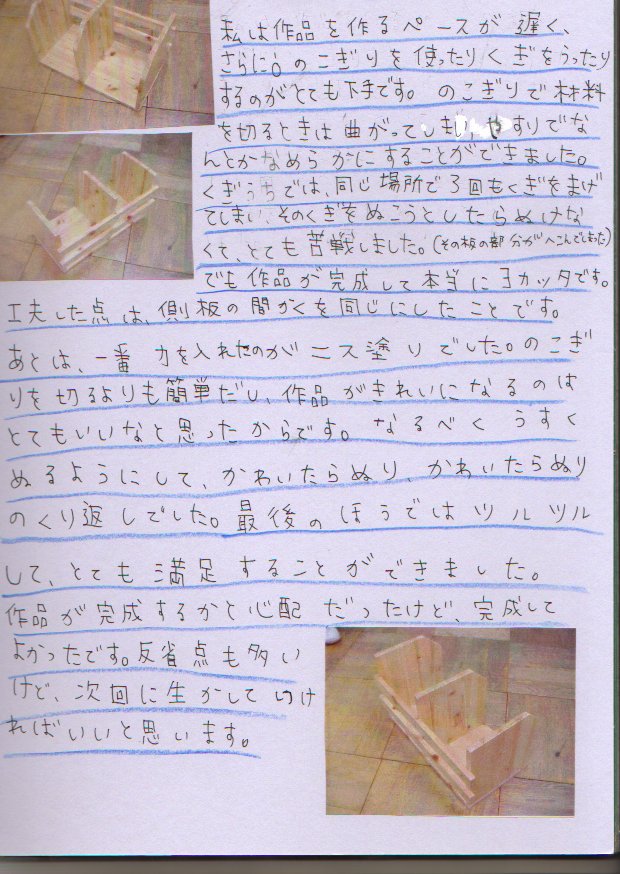 私は作品を作るペースが遅く、
さらに、のこぎりを使ったりくぎをうったり
するのがとても下手です。のこぎりで材料
を切るときは曲がってしまい、やすりでな
んとかなめらかにすることができました。
くぎうちでは、同じ場所で3回もくぎをまげ
てしまい、そのくぎをぬこうとしたらぬけな
くて、とても苦戦しました。(その板の部分がへこんでしまった)
でも作品が完成して本当にヨカッタです。
工夫した点は、側板の間かくを同じにしたことです。
あとは、一番力を入れたのがニス塗りでした。のこぎ
りを切るよりも簡単だし、作品がきれいになるのは
とてもいいなと思ったからです。なるべくうすく
ぬるようにして、かわいたらぬり、かわいたらぬり
のくり返しでした。最後のほうではツルツル
して、とても満足することができました。
作品が完成するかと心配だったけど、完成して
よかったです。反省点も多い
けど、次回に生かしていけ
ればいいと思います。